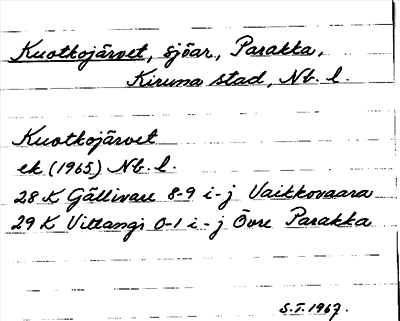 Kuotkojärvet, sjöar, Parakka,
Kiruna stad, Nb. l.
Kuotkojärvet
ek (1965) Nb. l.
28 K Gällivare 8-9 i-j Vaikkovaara
29 K Vittangi 0-1 i-j Övre Parakka
S.I. 1967.